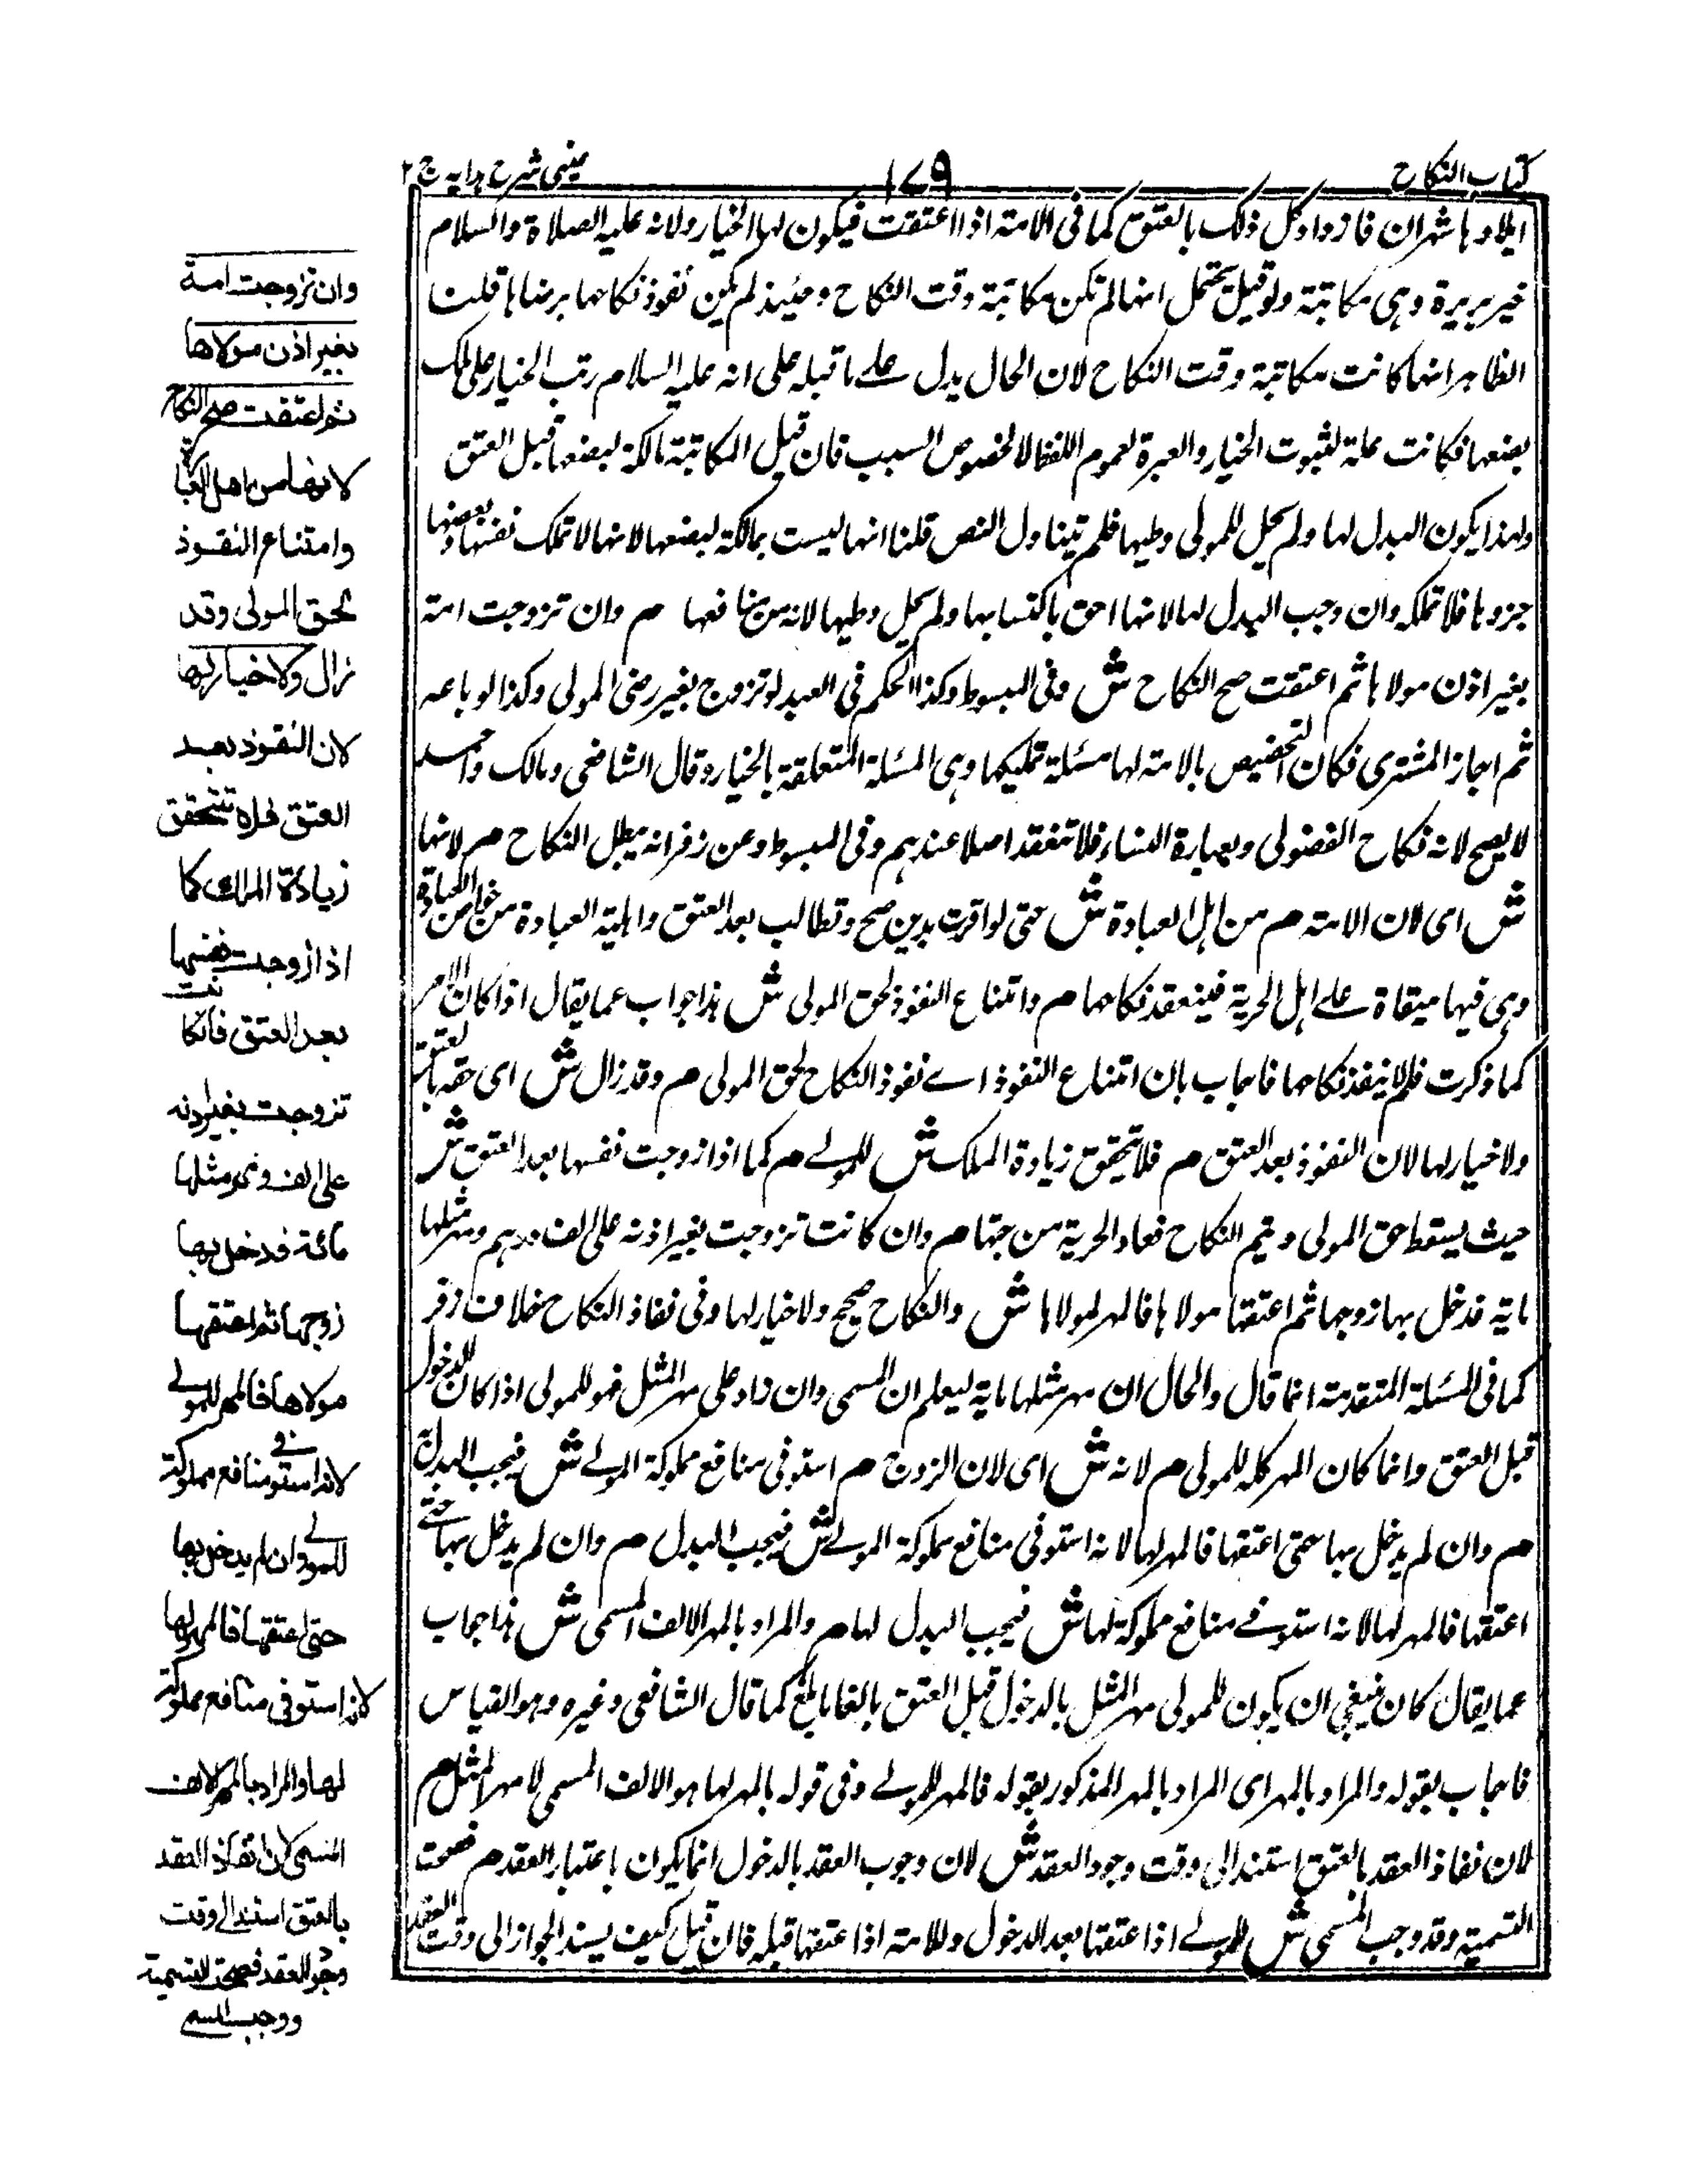 كتاب النكاح
١٧٩
عینی شرح ہدایہ ج ٢
ايلاؤها شهران فازداد كل ذلك بالعتق كما فى الامة اذا اعتقت فيكون لها الخيار ولانه عليه الصلاة والسلام
خير بريرة وهى مكاتبة ولو قيل يحتمل انها لم تكن مكاتبة وقت النكاح وحينئذ لم يكن نفوذ نكاحها برضاها قلت
الظاهر انها كانت مكاتبة وقت النكاح لان الحال يدل على ما قبله على انه عليه السلام رتب الخيار على ملك
بضعها فكانت علة لثبوت الخيار والعبرة لعموم اللفظ لا لخصوص السبب فان قيل المكاتبة مالكة لبضعها قبل العتق
ولهذا يكون البدل لها ولم يحل للمولى وطيها فلم يتناول النص قلنا انها ليست بمالكة لبضعها لانها لا تملك نفسها وبعضها
جزوها فلا تملكه وان وجب البدل لها لانها احق باكتسابها ولم يحل وطيها لانه من منافعها م وان تزوجت امة
بغير اذن مولاها ثم اعتقت صح النكاح ش وفى المبسوط وكذا الحكم فى العبد لو تزوج بغير رضى المولى وكذا لو باعه
ثم اجاز المشترى فكان التخصيص بالامة لها مسئلة تمليكها وهى المسئلة المتعلقة بالخيار وقال الشافعى ومالك واحمد
لا يصح لانه نكاح الفضولى وبعبارة النساء فلا تنعقد اصلا عندهم وفى المبسوط وعن زفر انه يبطل النكاح م لانها
ش اى لان الامة م من اهل العبادة ش حتى لو اقرت بدين صح وتطالب بعد العتق واهلية العبادة من خواص
وهى فيها مبقاة على اهل الحرية فينعقد نكاحها م وامتناع النفوذ لحق المولى ش هذا جواب عما يقال اذا كان الامر
كما ذكرت فلم لا ينفذ نكاحها فاجاب بان امتناع النفوذ اى نفوذ النكاح لحق المولى م وقد زال ش اى حقه بالعتق
ولا خيار لها لان النفوذ بعد العتق م فلا تتحقق زيادة الملك ش للمولى م كما اذا زوجت نفسها بعد العتق ش
حيث يسقط حق المولى ويتم النكاح فعاد الحرية من جهتها م وان كانت تزوجت بغير اذنه على الف درهم ومهر مثلها
ماية فدخل بها زوجها ثم اعتقها مولاها فالمهر لمولاها ش والنكاح صحيح ولا خيار لها وفى نفاذ النكاح خلاف زفر
كما فى المسئلة المتقدمة انما قال والحال ان مهر مثلها ماية ليعلم ان المسمى وان زاد على مهر المثل فهو للمولى اذا كان الدخول
قبل العتق وانما كان المهر كله للمولى م لانه ش اى لان الزوج م استوفى منافع مملوكة المولى ش فيجب البدل له
م وان لم يدخل بها حتى اعتقها فالمهر لها لانه استوفى منافع مملوكة المولى ش فيجب البدل م وان لم يدخل بها حتى
اعتقها فالمهر لها لانه استوفى منافع مملوكة لها ش فيجب البدل لها م والمراد بالمهر الالف المسمى ش هذا جواب
عما يقال كان ينبغى ان يكون للمولى مهر المثل بالدخول قبل العتق بالغا ما بلغ كما قال الشافعى وغيره وهو القياس
فاجاب بقوله والمراد بالمهر اى المراد بالمهر المذكور بقوله فالمهر للمولى وفى قوله بالمهر لها هو الالف المسمى لا مهر المثل م
لان نفاذ العقد بالعتق استند الى وقت وجود العقد ش لان وجوب العقد بالدخول انما يكون باعتبار العقد م فصحت
التسمية وقد وجب المسمى ش للمولى اذا عتقها بعد الدخول وللامة اذا عتقها قبله فان قيل كيف يسند الجواز الى وقت العقد
وان تزوجت امة
بغير اذن مولاها
ثم اعتقت صح النكاح
لانها من اهل العبارة
وامتناع النفوذ
لحق المولى وقد
زال ولا خيار لها
لان النفوذ بعد
العتق فلا تتحقق
زيادة الملك كما
اذا زوجت نفسها
بعد العتق فان كانت
تزوجت بغير اذنه
على الف ومهر مثلها
مائة فدخل بها
زوجها ثم اعتقها
مولاها فالمهر للمولى
لانه استوفى منافع مملوكة
للمولى وان لم يدخل بها
حتى اعتقها فالمهر لها
لانه استوفى منافع مملوكة
لها والمراد بالمهر الالف
المسمى لان نفاذ العقد
بالعتق استند الى وقت
وجود العقد فصحت التسمية
ووجب المسمى